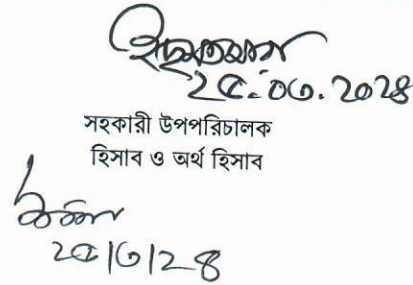 ২৫.০৩.২০২৪
সহকারী উপপরিচালক
হিসাব ও অর্থ হিসাব
২৫/৩/২৪